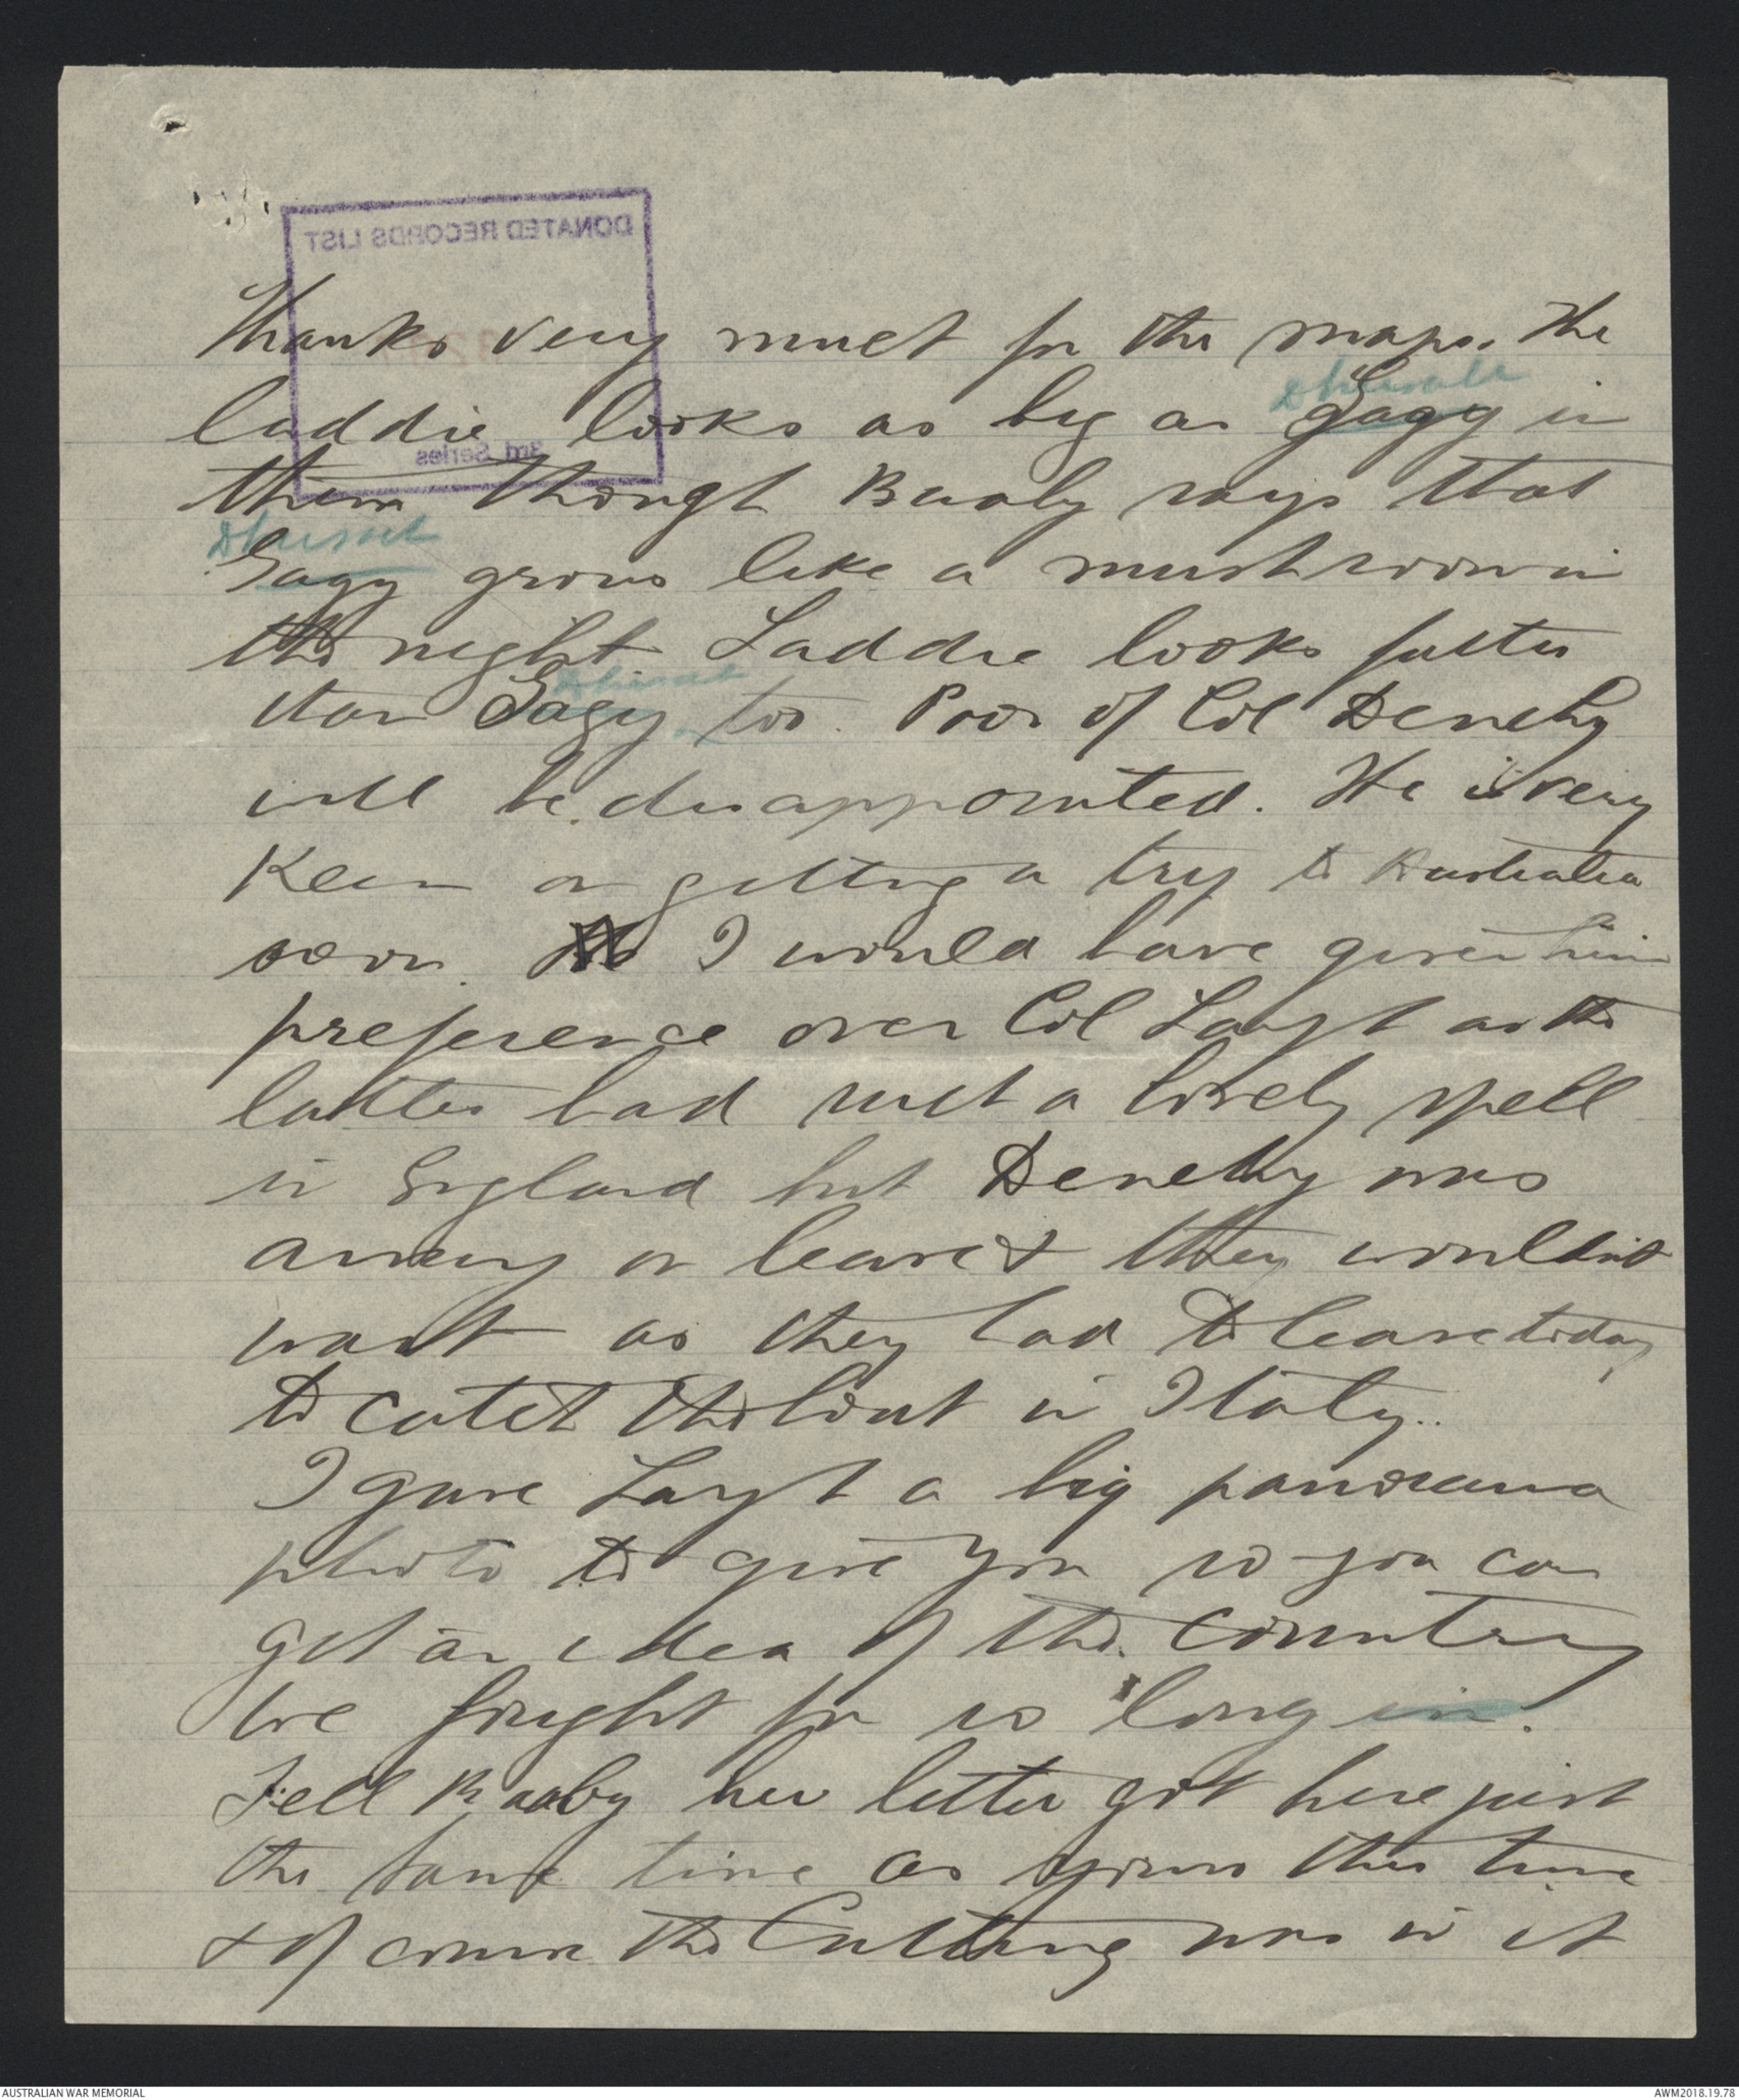 DONATED RECORDS LIST
3rd Series
Thanks very much for the maps. The
laddie looks as big as Gagy in
them though Baaby says that
Gagy grows like a mushroom in
the night. Laddie looks fatter
than Gagy too. Poor old Col Denehy
will be disappointed. He is very
keen on getting a trip to Australia
soon. I would have given him
preference over Col Layh as the
latter had such a lovely spell
in England but Denehy was
away on leave & they wouldn't
wait as they had to leave today
to catch the boat in Italy.
I gave Layh a big panorama
photo to give you so you can
get an idea of the country
we fought for so long in.
Tell Baaby her letter got here just
the same time as yours this time
& of course the Cutting was in it
AUSTRALIAN WAR MEMORIAL
AWM2018.19.78